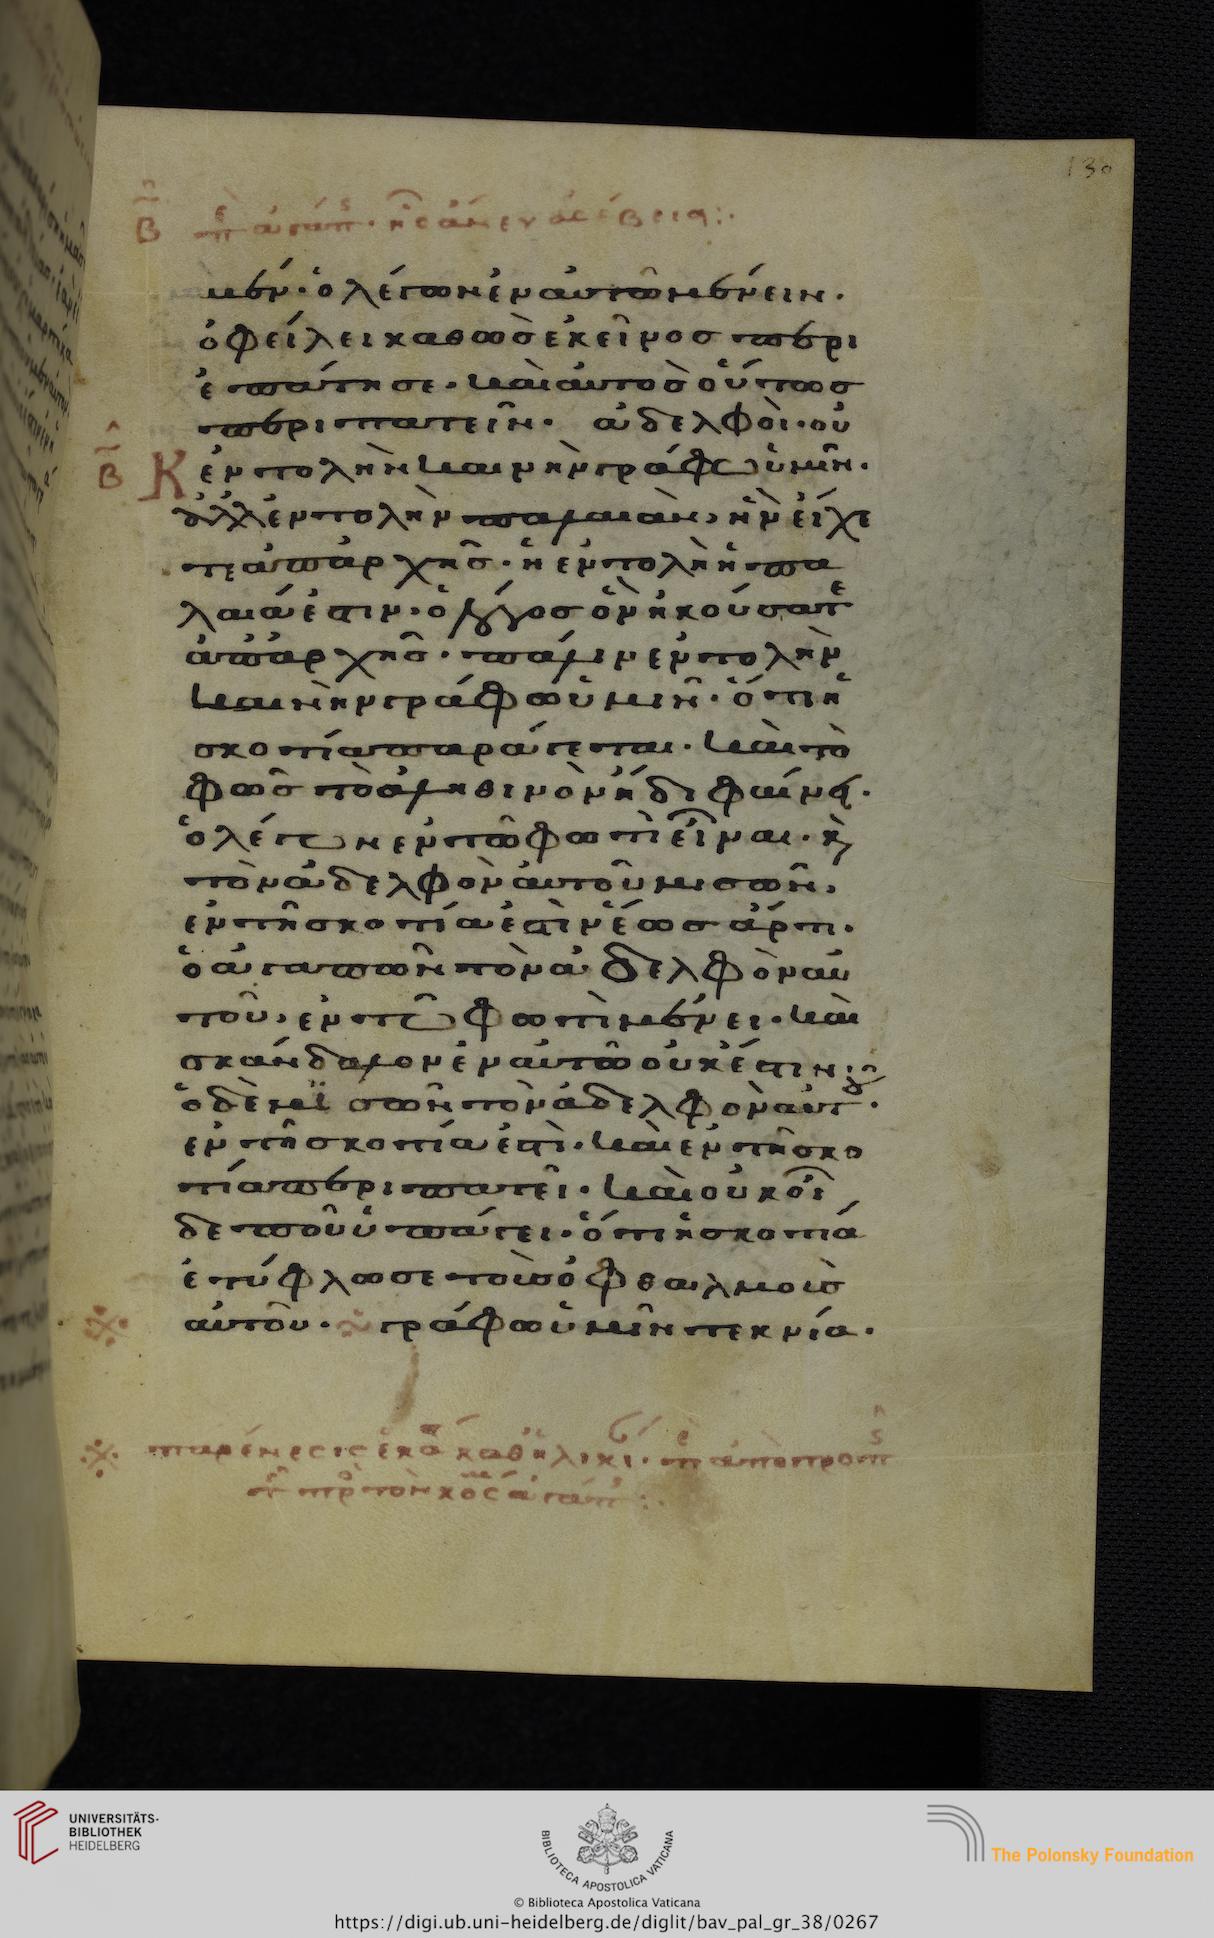 130
μεν· ὁ λέγων ἐν αὐτῶ μένειν·
ὀφείλει καθὼς ἐκεῖνος περι
επάτησε· καὶ αὐτὸς οὕτως
περιπατεῖν· ἀδελφοὶ· οὐ
Κ ἐντολὴν καινὴν γράφω ὑμῖν·
ἀλλ' ἐντολὴν παλαιὰν, ἣν εἴχε
τε ἀπαρχῆς· ἡ ἐντολὴ ἡ πα
λαιά ἐστιν· ὁ λόγος ὃν ἠκούσατε
ἀπαρχῆς· πάλιν ἐντολὴν
καινὴν γράφω ὑμῖν· ὅτι ἡ
σκοτία παράγεται· καὶ τὸ
φῶς τὸ ἀληθινὸν ἤδη φαίνει·
ὁ λέγων ἐν τῶ φωτὶ εἶναι· καὶ
τὸν ἀδελφὸν αὐτοῦ μισῶν,
ἐν τῆ σκοτία ἐστὶν ἕως ἄρτι·
ὁ ἀγαπῶν τὸν ἀδελφὸν αὐ
τοῦ, ἐν τῶ φωτὶ μένει· καὶ
σκάνδαλον ἐν αὐτῶ οὐκ ἔστιν·
ὁ δὲ μισῶν τὸν ἀδελφὸν αὐτοῦ·
ἐν τῆ σκοτία ἐστὶ· καὶ ἐν τῆ σκο
τία περιπατεῖ· καὶ οὐκ οἶ
δε ποῦ ὑπάγει· ὅτι ἡ σκοτία
ἐτύφλωσε τοὺς ὀφθαλμοὺς
αὐτοῦ· γράφω ὑμῖν τεκνία·
UNIVERSITÄTS-
BIBLIOTHEK
HEIDELBERG
BIBLIOTECA APOSTOLICA VATICANA
The Polonsky Foundation
© Biblioteca Apostolica Vaticana
https://digi.ub.uni-heidelberg.de/diglit/bav_pal_gr_38/0267